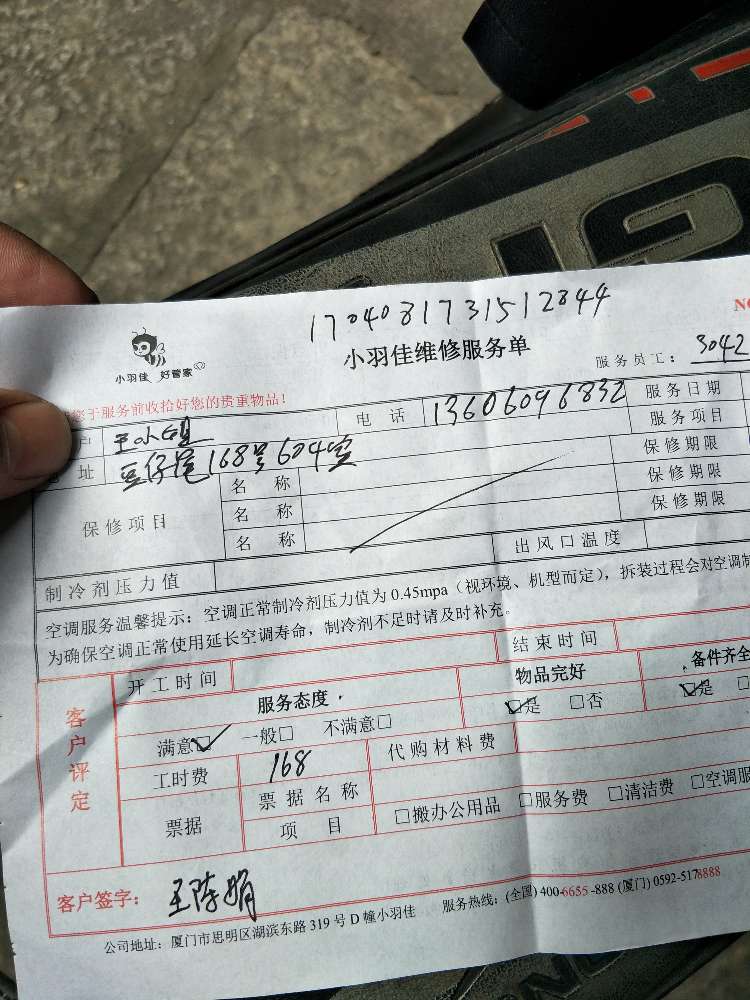 1704081731512844
NO
小羽佳 好管家
小羽佳维修服务单
服务员工: 3042
您于服务前收拾好您的贵重物品!
户 王小姐 电 话 13606096832 服务日期
址 豆仔尾168号604室 服务项目
保修项目 名 称 保修期限
名 称 保修期限
名 称 保修期限
制冷剂压力值 出风口温度
空调服务温馨提示: 空调正常制冷剂压力值为 0.45mpa (视环境、机型而定), 拆装过程会对空调制
为确保空调正常使用延长空调寿命, 制冷剂不足时请及时补充。
客户评定
开工时间 结束时间
服务态度 物品完好 备件齐全
满意☑ 一般□ 不满意□ ☑是 □否 ☑是
工时费 168 代购材料费
票据 票据名称
项 目 □搬办公用品 □服务费 □清洁费 □空调服
客户签字: 王陈娟
公司地址: 厦门市思明区湖滨东路 319 号 D 幢小羽佳 服务热线: (全国) 400-6655-888 (厦门) 0592-5178888